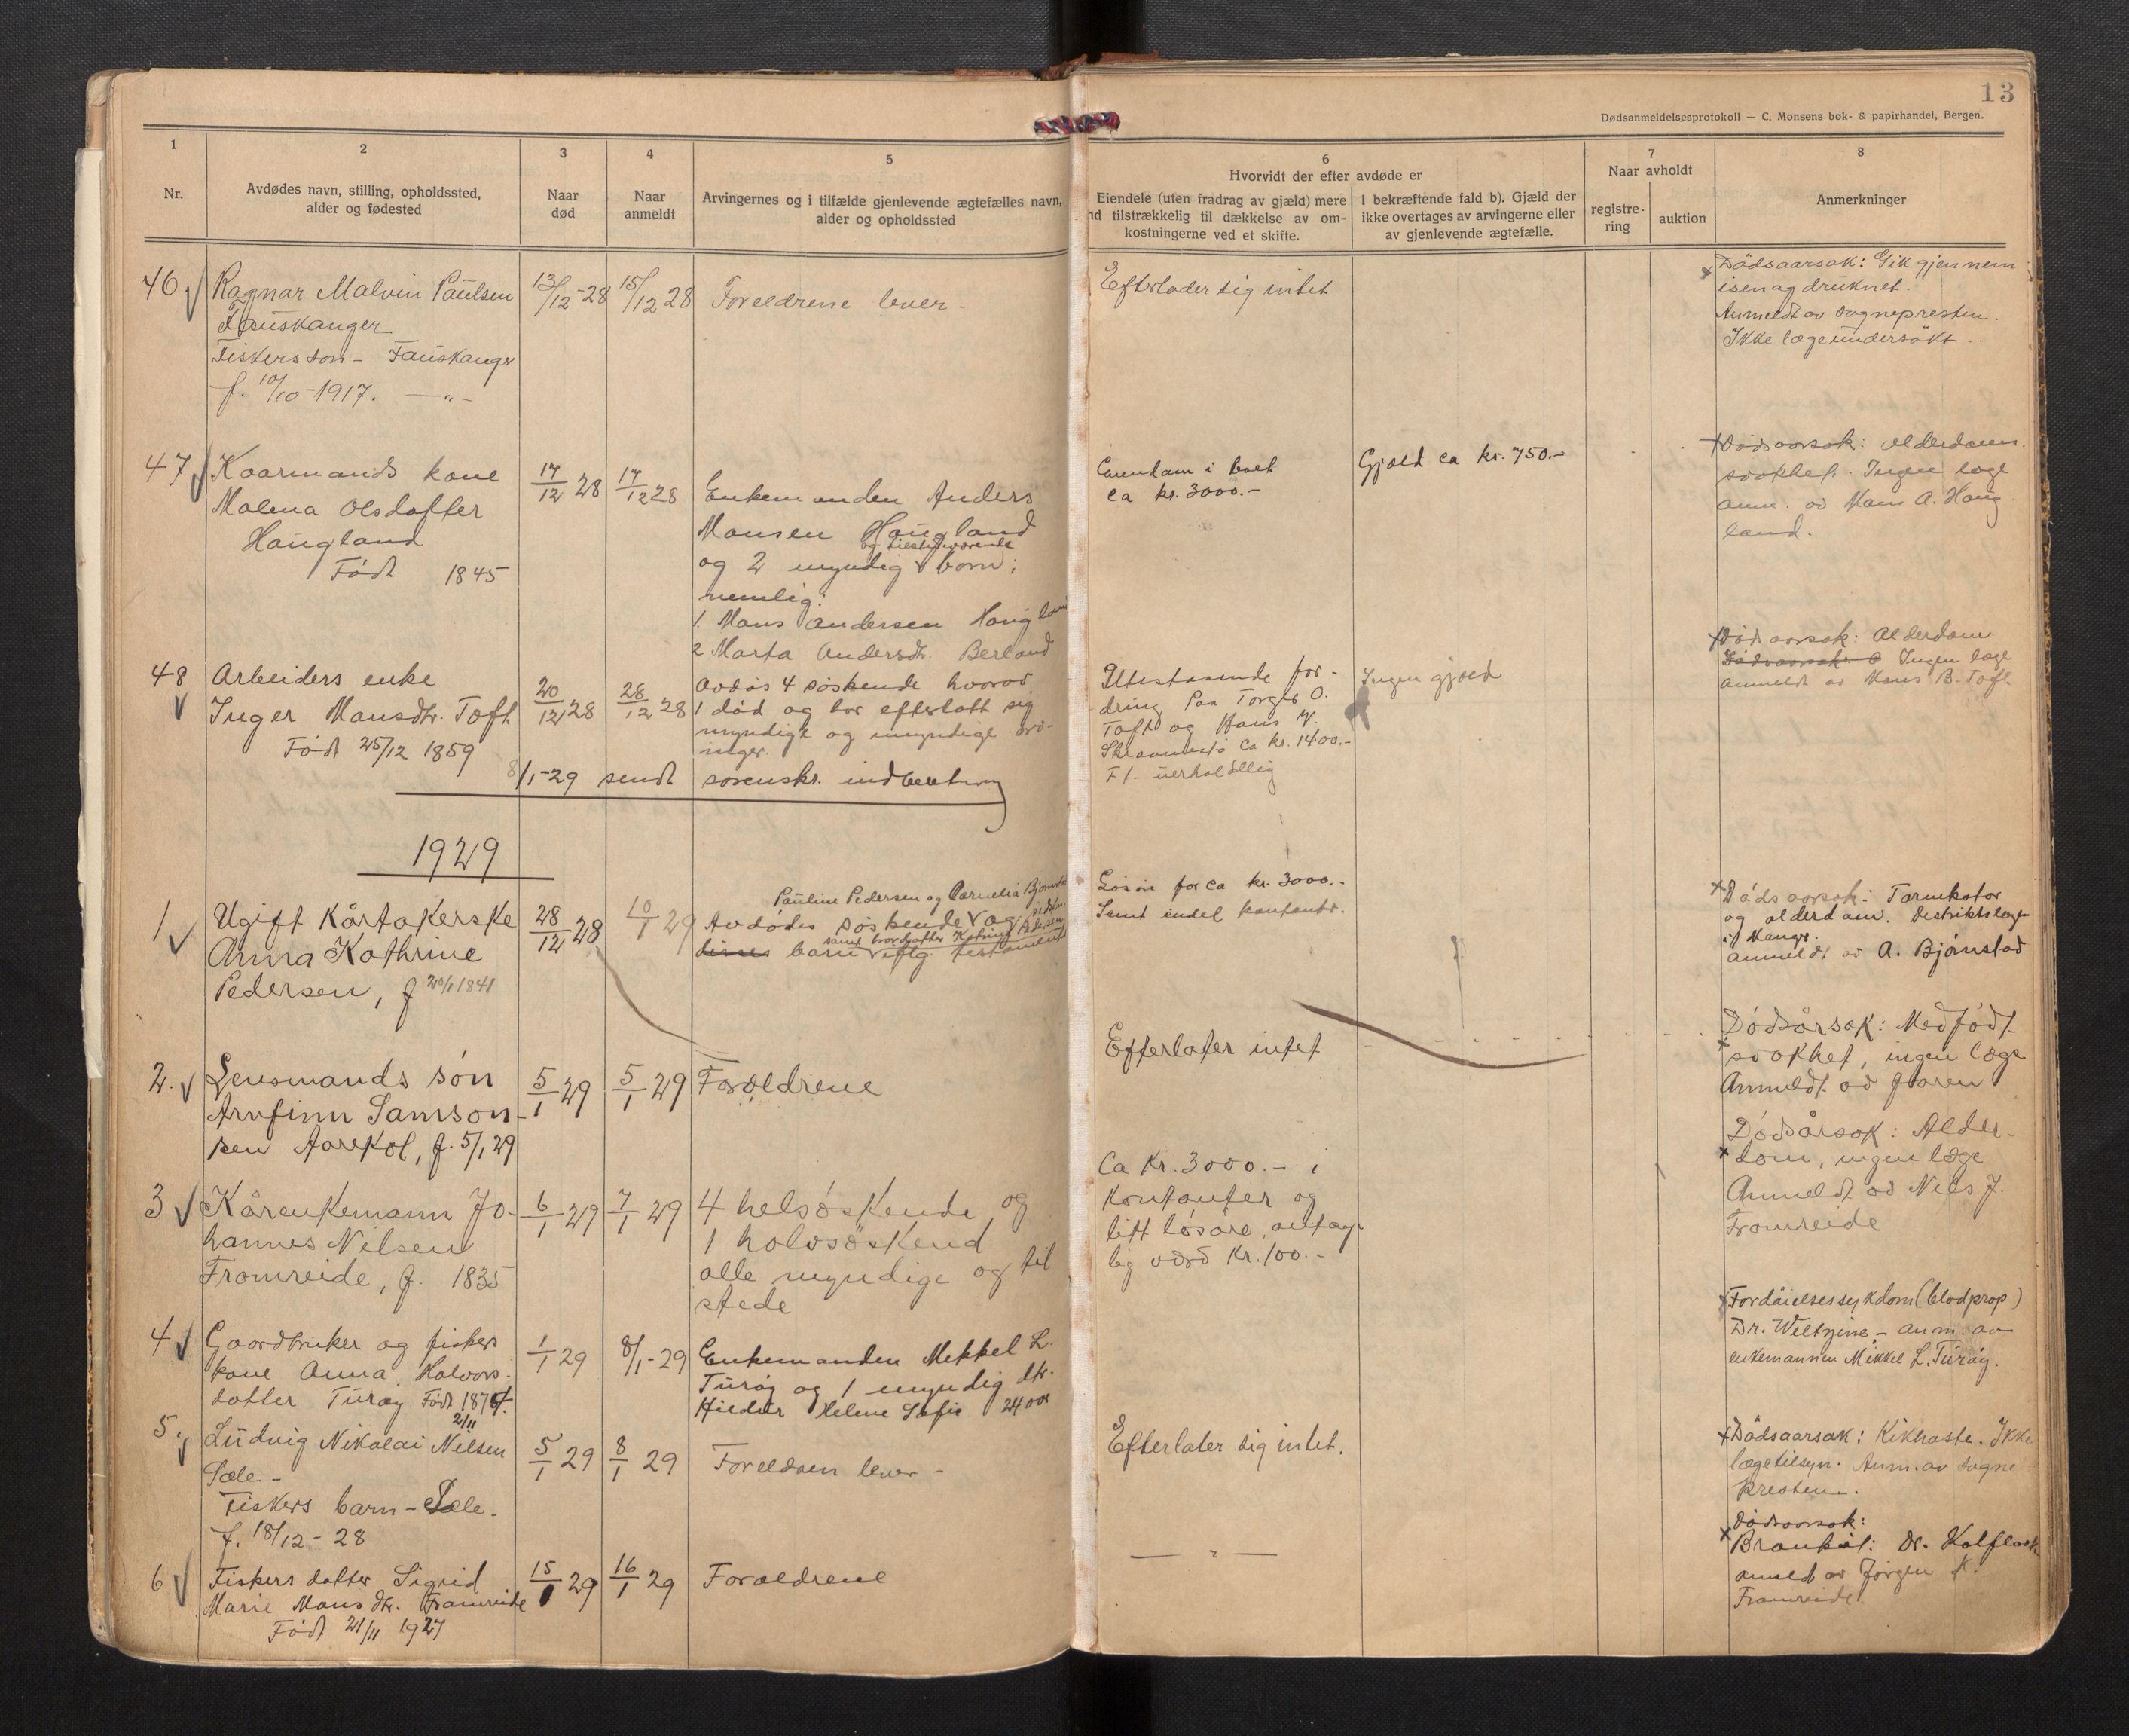 13
Dødsanmeldelsesprotokoll — C. Monsens bok- & papirhandel, Bergen.
1
Nr.
2
Avdødes navn, stilling, opholdssted,
alder og fødested
3
Naar
død
4
Naar
anmeldt
5
Arvingernes og i tilfælde gjenlevende ægtefælles navn,
alder og opholdssted
6
Hvorvidt der efter avdøde er
Eiendele (uten fradrag av gjæld) mere
nd tilstrækkelig til dækkelse av om-
kostningerne ved et skifte.
I bekræftende fald b). Gjæld der
ikke overtages av arvingerne eller
av gjenlevende ægtefælle.
7
Naar avholdt
registre-
ring
auktion
8
Anmerkninger
46
Ragnar Malvin Paulsen
Fauskanger
Fiskers søn - Fauskanger
f. 10/10-1917. —"—
13/12-28
15/12 28
Foreldrene lever -
Efterlader sig intet
Dödsaarsak: Gik gjennem
isen og druknet.
Anmeldt av sognepresten.
Ikke lægeundersökt.
47
Kaarmands kone
Malena Olsdatter
Haugland
Født 1845
17/12 28
17/12 28
Enkemanden Anders
Monsen Haugland
og tilstedeværende
og 2 myndig born;
nemlig:
1. Mons Andersen Haugland
2 Marta Andersdtr. Berland
Eiendom i boet
ca kr. 3000.-
Gjæld ca kr. 750.-
Dødsaarsak: Alderdoms
svakhet. Ingen læge
anm. av Mons A. Haug
land.
48
Arbeiders enke
Inger Monsdtr. Toft
Født 25/12 1859
20/12 28
28/12 28
Avdøs 4 søskende hvorav
1 død og har efterlatt sig
myndige og umyndige arv-
inger.
Utestaaende for-
dring paa Torger O.
Toft og Hans
ca kr. 1400.-
Ingen gjæld
Dødsaarsak: Alderdom
Dødsaarsak Ingen læge
anmeldt av Mons B. Toft
8/1-29 sendt sorenskr. indberetning
1929
1
Ugift Kårtakerske
Anna Kathrine
Pedersen, f 20/1 1841
28/12 28
10/1 29
Pauline Pedersen og Cornelia Bjørnstad
Avdødes søskende og
disses barn iflg. testament
Løsøre for ca kr. 3000.-
Samt endel kontanter.
Dødsaarsak: Tarmkatar
og alderdom. Distriktslæge
i Manger.
anmeldt av A. Bjørnstad
2.
Lensmands søn
Arnfinn Samson-
sen Aarekol, f. 5/1 29
5/1 29
5/1 29
Forældrene
Efterlater intet
Dødsårsak: Medfødt
svakhet, ingen læge
Anmeldt av faren
3
Kårenkemann Jo-
hannes Nilsen
Fromreide, f. 1835
6/1 29
7/1 29
4 helsøskende, og
1 halvsøskend
alle myndige og til
stede
Ca kr. 3000.- i
Kontanter og
litt løsøre, antage
lig værd kr. 100.-
Dødsårsak: Alder-
dom, ingen læge
Anmeldt av Nils J.
Fromreide
4
Gaardbruker og fisker
kone Anna Halvors-
datter Turøy Født 187
1/1 29
8/1-29
Enkemanden Mikkel L.
Turøy og 1 myndig dtr.
Helene Sofie 24 aar
Fordøielsessykdom (blodprop)
Dr. - anm. av
enkemannen Mikkel L. Turøy.
5
Ludvig Nikolai Nilsen
Sæle -
Fiskers barn - Sæle.
f. 18/12-28
5/1 29
8/1 29
Foreldren lever -
Efterlater sig intet.
Dødsaarsak: Kikhoste. Ikke
lægetilsyn. Anm. av sogne
presten.
6
Fiskers datter Sigrid
Marie Monsdtr. Framreide
Født 21/11 1927
15/1 29
16/1 29
Forældrene
— " —
Dødsaarsak:
Bronkit: Dr. Kalfløs
anmeldt av Jørgen K.
Framreide.